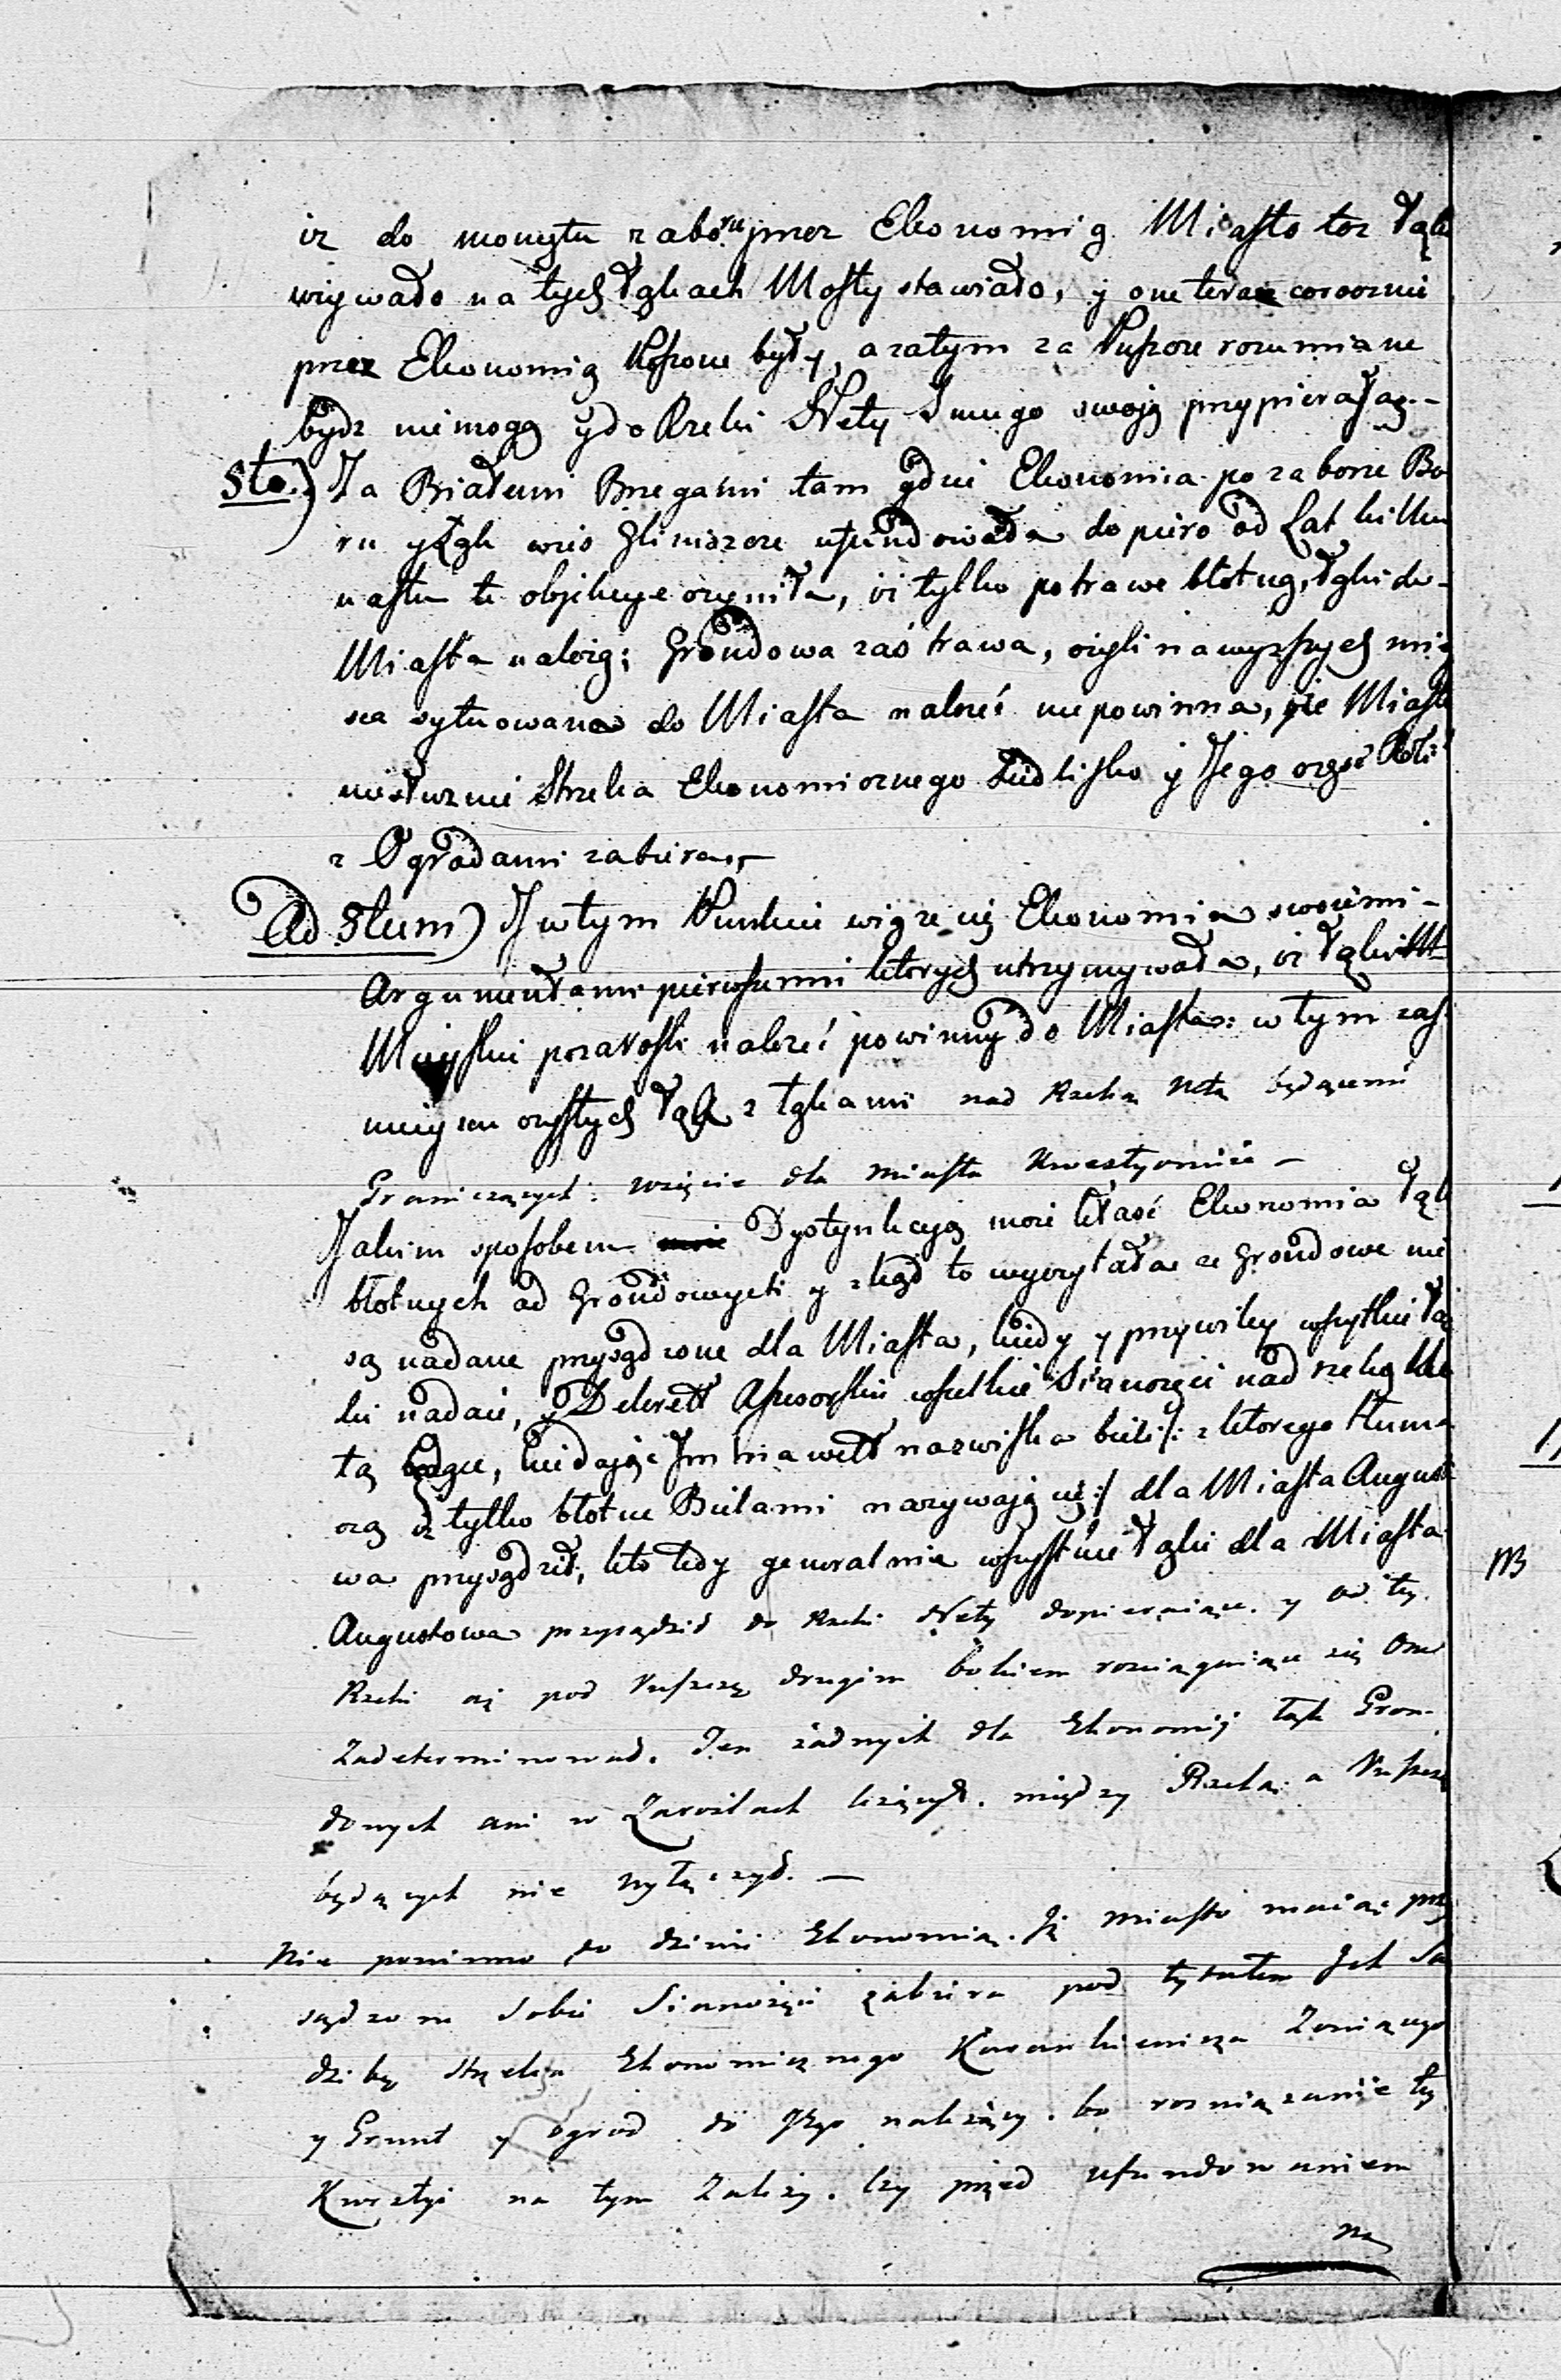 iz do momentu zaboru przez Ekonomią Miasto tez Łąk
uzywało na tych Łąkach Mosty stawiało, y one teraz corocznie
przez Ekonomią Koszone były, a zatym za Puszcze rozumiane
bydz niemogą y do Rzeki Netty smugo swoją przypierają.-
5to.) Za Białemi Brzegami tam gdzie Ekonomia po zaborze Bo
ru y Łąk wies Gliniszcze ufundowała dopiero od Lat kilku
nastu te objekcye czyniła, iż tylko potrawe błotną, Łąki do-
Miasta nalezą; Grondowa zaś trawa, czyli na wyższych miey
sca sytuowana do Miasta nalezeć niepowinna, że Miasto
niesłusznie Strzelca Ekonomicznego Siedlisko y Jego część Roli
z Ogrodami zabiera.-
Ad 5tum) J w tym Punkcie wiąże się Ekonomia swoiemi-
Argumentami pierwszemi ktorych utrzymywała, iż Łąki
Mieyskie pozarosłe nalezeć powinny do Miasta: w tym zaś
mieyscu czystych Łąk z Łąkami nad Rzeką Nettą będącemi
Graniczących: wzięcie dla Miasta Kwestyonuie -
Jakim sposobem Dystynkcyą może kłaść Ekonomia Łąk
błotnych od Grondowych y zkąd to wyczytała ze Grondowe nie
są nadane przysądzone dla Miasta, kiedy y przywiley wszystkie Łą
ki nadaie, y Dekrett Assesorski wszelkie Sianozęci nad rzeką Ne
tą będące, niedając Im nawett nazwiska biel /: z ktorego tłuma
czą iż tylko błotne Bielami nazywają się :/ dla Miasta Augusto
wa przysądził, kto tedy generalnie wszystkie Łąki dla Miasta
Augustowa przysądził do Rzeki Netty dopieraiące y od tey
Rzeki aż pod Puszczę drugim bokiem rosciągaiące się One
Zadeterminował. Ten żadnych dla Ekonomij łąk Gron-
dowych ani w Zaroślach leżących. między Rzeką a Puszczą
będących nie wyłączył. -
Nie powinno to dziwić Ekonomią. Iż Miasto maiąc przy
sądzone Sobie Sianożęci zabiera pod tytułem Ich Sa
dzibę strzelca Ekonomicznego Karankiewicza Zowiącego
y Grunt y ogrod do Jego należący. bo rozwiązanie tey
Kwestyi na tym Zależy. Czy przed ufundowaniem
Na
NB